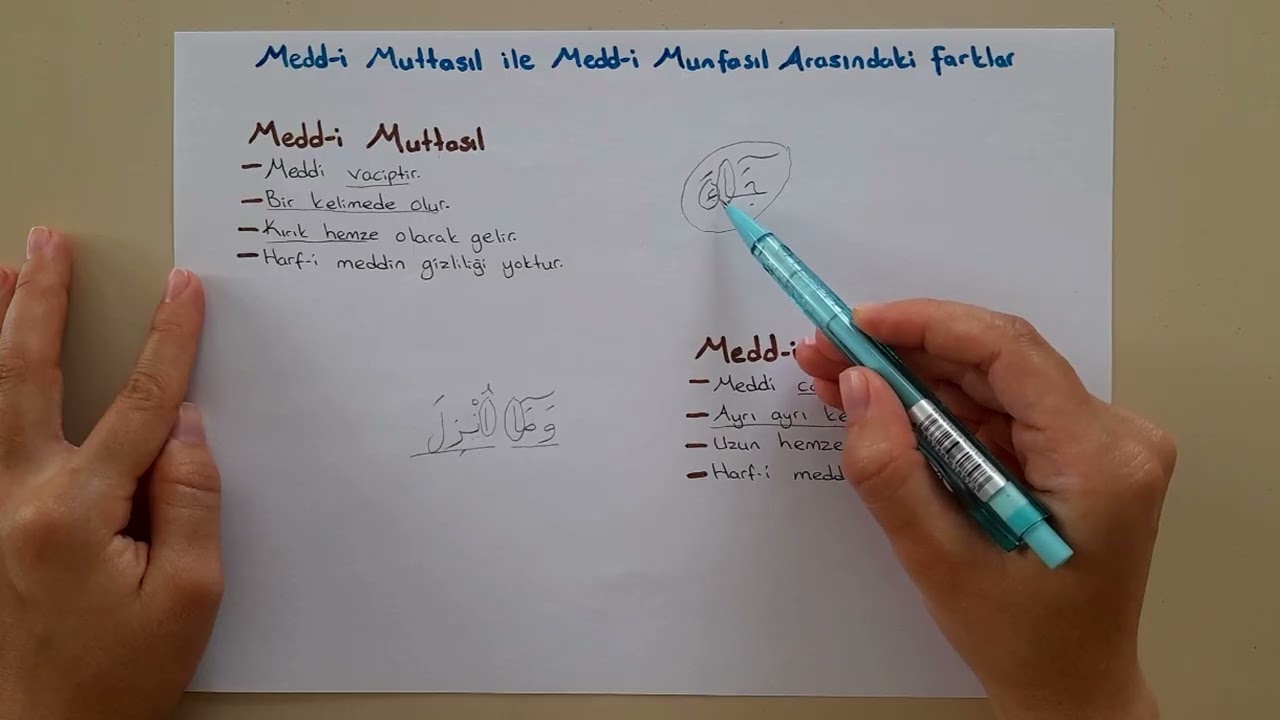 Medd-i Muttasıl ile Medd-i Munfasıl Arasındaki farklar
Medd-i Muttasıl
- Meddi vaciptir.
- Bir kelimede olur.
- Kırık hemze olarak gelir.
- Harf-i meddin gizliliği yoktur.
جَٓاءَ
وَمَٓا اُنْزِلَ
Medd-i
- Meddi
- Ayrı ayrı
- Uzun hemze
- Harf-i